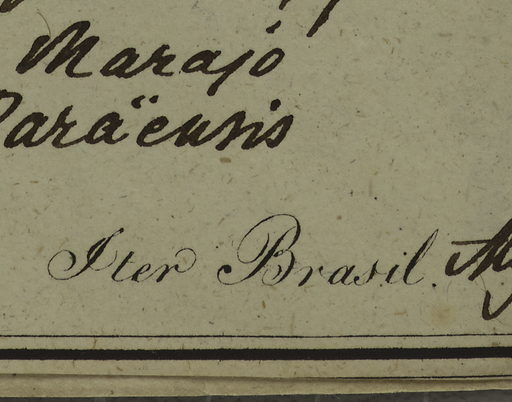 Marajó
Paraënsis
Iter Brasil.